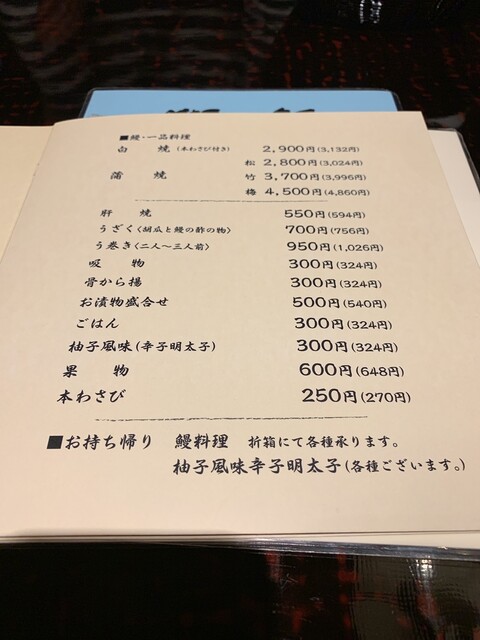 ■鰻・一品料理
白　焼（本わさび付き）　2,900円(3,132円)
松 2,800円(3,024円)
蒲　焼　竹 3,700円(3,996円)
梅 4,500円(4,860円)
肝　焼　550円(594円)
うざく〈胡瓜と鰻の酢の物〉　700円(756円)
う巻き〈二人〜三人前〉　950円(1,026円)
吸　物　300円(324円)
骨から揚　300円(324円)
お漬物盛合せ　500円(540円)
ごはん　300円(324円)
柚子風味(辛子明太子)　300円(324円)
果　物　600円(648円)
本わさび　250円(270円)
■お持ち帰り　鰻料理　折箱にて各種承ります。
柚子風味辛子明太子(各種ございます。)